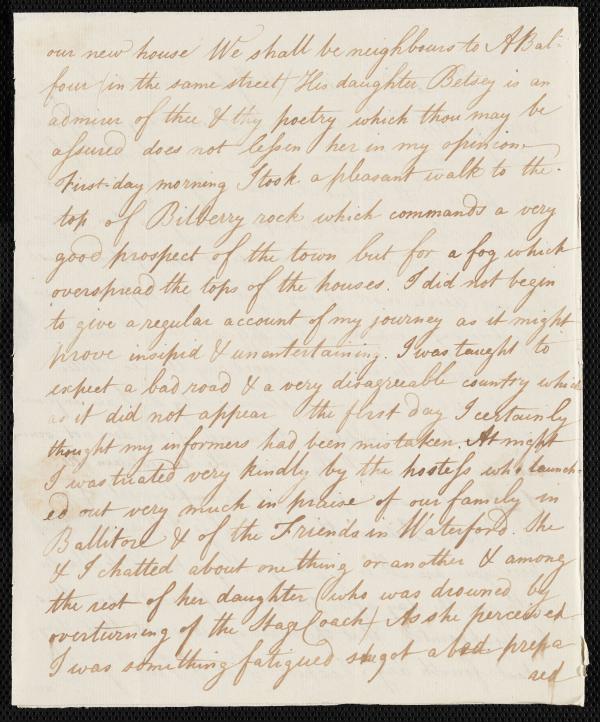 our new house We shall be neighbours to A Bal-
four (in the same street) His daughter Betsey is an
admirer of thee & thy poetry which thou may be
assured does not lessen her in my opinion
First-day morning I took a pleasant walk to the
top of Bilberry rock which commands a very
good prospect of the town but for a fog which
overspread the tops of the houses. I did not begin
to give a regular account of my journey as it might
prove insipid & unentertaining. I was taught to
expect a bad road & a very disagreeable country which
as it did not appear the first day I certainly
thought my informers had been mistaken. At night
I was treated very kindly by the hostess who launch-
ed out very much in praise of our family in
Ballitore & of the Friends in Waterford. She
& I chatted about one thing or another & among
the rest of her daughter (who was drowned by
overturning of the Stage Coach) As she perceived
I was something fatigued she got a bed prepa
red